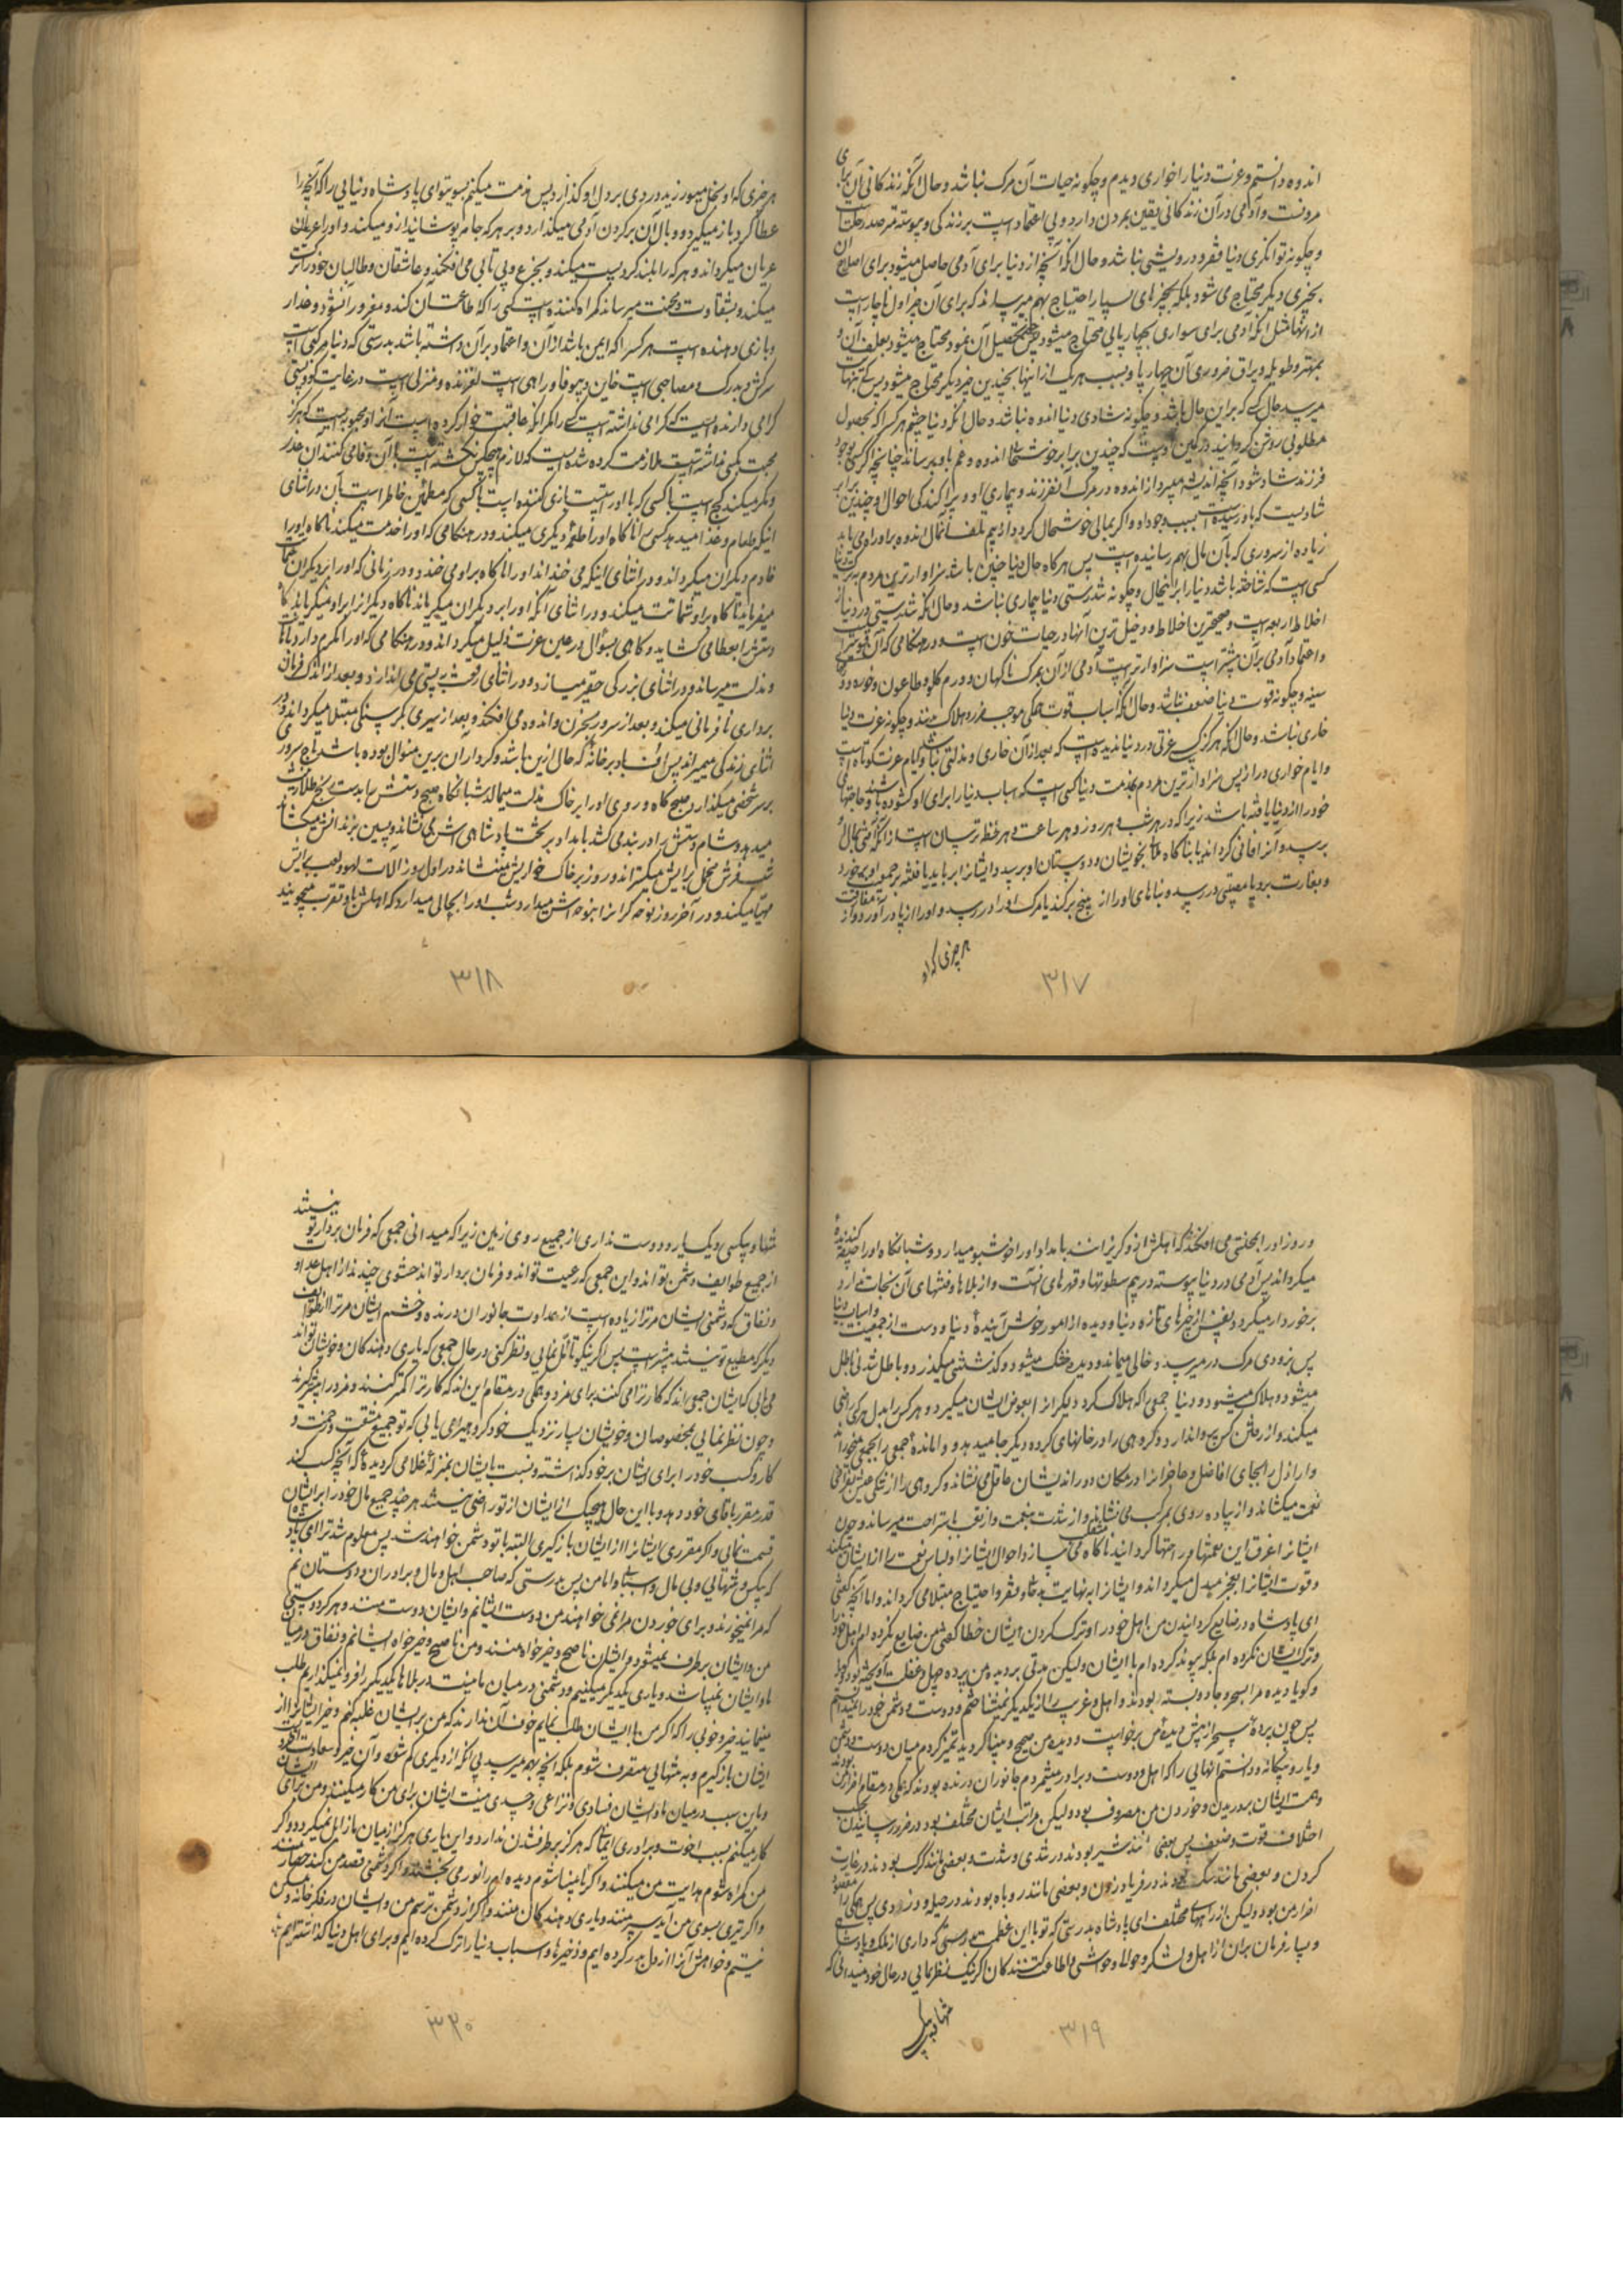 اندوه دانستم و عزت دنیا را خواری دیدم و چگونه حیات آن مرگ نباشد و حال آنکه زندگانی آن برای
مردنست و آدمی در آن زندگانی یقین بمردن دارد و بی اعتماد است بر زندگی و پیوسته مترصد رحلت است
و چگونه توانگری دنیا فقر و درویشی نباشد و حال آنکه آنچه از دنیا برای آدمی حاصل میشود برای اصلاح آن
بچیزی دیگر محتاج می شود بلکه بچیزهای بسیار احتیاج بهم میرساند که برای آن چیز اول ناچار است
از انها مثل انکه آدمی برای سواری بچهارپایی محتاج میشود چون تحصیل آن نمود محتاج میشود بعلف آن و
بمهتر و طویله و یراق ضروری آن چهارپا و بسبب هر یک از اینها بچندین چیز دیگر محتاج میشود پس کی بنهایت
میرسد حال کسی که بر این حال باشد و چگونه شادی دنیا اندوه نباشد و حال آنکه دنیا چشم هر کس را که بحصول
مطلوبی روشن گردانید در کمین اوست که چندین برابر خوشحالی اندوه و غم باو برساند چنانچه اگر کسی بوجود
فرزند شاد شود آنچه اندیشه میبرد از اندوه در مرگ آن فرزند و بیماری او و پراکندگی احوال او چندین برابر
شادیست که باو رسیده است بسبب وجود او و اگر بمالی خوشحال گردد از بیم تلف آن مال اندوه بر او راه می یابد
زیاده از سروری که بآن مال بهم رسانیده است پس هر گاه حال دنیا چنین باشد سزاوارترین مردم بترک دنیا
کسی است که شناخته باشد دنیا را بر اینحال و چگونه تندرستی دنیا بیماری نباشد و حال آنکه تندرستی در دنیا از
اخلاط اربعه است و صحیحترین اخلاط و دخیل ترین آنها در حیات خون است و در هنگامی که آن قویتر است
و اعتماد آدمی بر آن بیشتر است سزاوارتر است آدمی از آن بمرگ ناگهان و درم گلو و طاعون و خوره و
سینه و چگونه قوت دنیا ضعف نباشد و حال آنکه اسباب قوت همگی موجب ضرر و هلاک بدنند و چگونه عزت دنیا
خاری نباشد و حال آنکه هرگز کسی عزتی در دنیا ندیده است که بعد از آن خاری و مذلتی نباشد و ایام عزت کوتاه است
و ایام خواری دراز پس سزاوارترین مردم بمذمت دنیا کسی است که اسباب دنیا را برای او گشوده باشند و حاجتهای
خود را از دنیا یافته باشد زیرا که در هر شب و هر روز و هر ساعت و هر لحظه ترسان است از آنکه آفتی بمال او
برسد و آنرا فانی گرداند یا ناگاه بلا بخویشان و دوستان او برسد و ایشانرا برباید یا فتنه بر جمعیت او بخورد
و بغارت برد یا مصیبتی در رسد و بناهای او را از بیخ برکند یا مرگ او را در رسد و او را از پا درآورد و از مفارقت
هر چیزی که او
۳۱۷
هر چیزی که او بخل میورزید دردی بر دل او گذارد پس مذمت میکنم بسوی تو ای پادشاه دنیایی را که آنچه را
عطا کرد باز میگیرد و وبال آن بر گردن آدمی میگذارد و بر هر که جامه پوشانید از او میکند و او را عریان
عریان میگرداند و هر که را بلند کرد پست میکند و بجزع و بی تابی می افکند و عاشقان و طالبان خود را ترک
میکند و بشقاوت و محنت میرساند گمراه کننده است کسی را که اطاعت آن کند و مغرور آن شود و غدار
و بازی دهنده است هر کس را که ایمن باشد از آن و اعتماد بر آن داشته باشد بدرستی که دنیا مرکبی است
سرکش و بدرگ و مصاحبی است خاین و بیوفا و راهی است لغزنده و منزلی است در غایت گود و پستی
گرامی دارنده ایست که گرامی نداشته است کسی را مگر آنکه عاقبت خوار کرده است آنرا و محبوبیست که هرگز
محبت بکسی نداشته است ملازمت کرده شده ایست که لازم هیچکس نگشته است با آن وفا می کنند آن غدر
و مکر میکند کج است با کسی که با او راستست بازی کننده است با کسی که مطمئن خاطر است بآن در اثنای
اینکه طعام و غذا میدهد کسی را ناگاه او را طعمه دیگری میکند و در هنگامی که او را خدمت میکنند ناگاه او را
خادم دیگران میگرداند و در اثنای اینکه می خنداند او را ناگاه بر او می خندد و در زمانی که او را بر دیگران شماتت
میفرماید ناگاه بر او شماتت میکند و در اثنای آنکه او را بر دیگران میگریاند ناگاه دیگرانرا بر او میگریاند گاه
دستش را بعطا می گشاید و گاهی بسؤال در عین عزت ذلیل میگرداند و در هنگامی که او را مکرم دارد باهانت
و مذلت میرساند و در اثنای بزرگی حقیر میسازد و در اثنای رفعت به پستی می اندازد و بعد از اندک فرمان
برداری نافرمانی میکند و بعد از سرور بحزن و اندوه می افکند و بعد از سیری بگرسنگی مبتلا میگرداند و در
اثنای زندگی میمیراند پس اف باد بر خانه که حال این باشد و کردار آن برین منوال بوده باشد تاج سرور
بر سر شخصی میگذارد صبحگاه و روی او را بر خاک مذلت میمالد شبانگاه صبح دستش را بدست برنج طلا زینت
میدهد و شام دستش را در بند می کشد بامداد بر تخت پادشاهی اش می نشاند و پسین بزندانش میکشد
شب فرش مخمل برایش میگستراند و روز بر خاک خواریش مینشاند در اول روز آلات لهو و لعب برایش
مهیا میکند و در آخر روز نوحه گرانرا بنوحه اش میدارد شب او را بحالی میدارد که اهلش باو تقرب میجویند
۳۱۸
و روز او را بمحنتی می افکند که اهلش از او گریزانند بامداد او را خوشبو میدارد و شبانگاه او را جیفه گندیده
میگرداند پس آدمی در دنیا پیوسته در بیم سطوتها و قهرهای آنست و از بلاها و فتنهای آن نجات ندارد
برخوردار میگردد نفس از چیزهای تازه دنیا و دیده از امور خوش آینده دنیا و دست از جمعیت و اسباب دنیا
پس بزودی مرگ در میرسد و خالی میماند و دیده خشک میشود و گذشتنی میگذرد و باطل شدنی باطل
میشود و هلاک میشود و دنیا جمعی را که هلاک کرد دیگران را بعوض ایشان میگیرد و هر کس را بدل هر کس راضی
میکند و از رفتن کسی پروا ندارد و گروهی را در خانهای گروه دیگر جا میدهد و وامانده جمعی را بجمعی میخوراند
و اراذل را بجای افاضل و عاجزانرا در مکان دور اندیشان عاقل می نشاند و گروهی را از تنگی عیش بفراخی
نعمت میکشاند و از پیاده روی بمرکب می نشاند و از شدت بنعمت و از تعب باستراحت میرساند و چون
ایشانرا غرق این نعمتها و راحتها گردانید ناگاه منقلب می سازد احوال ایشانرا و لباس نعمت را از ایشان میکند
و قوت ایشانرا بعجز مبدل میگرداند و ایشانرا به نهایت بدحالی و فقر و احتیاج مبتلا می گرداند و اما آنچه گفتی
ای پادشاه در ضایع گردانیدن من اهل خود را و ترک کردن ایشان خطا گفتی من ضایع نکرده ام اهل خود را
و ترک ایشان نکرده ام بلکه پیوند کرده ام با ایشان ولیکن مدتی بر دیده من پرده جهل و غفلت آویخته بود
و گویا دیده مرا بسحر و جادو بسته بودند و اهل و غریب را از یکدیگر نمیشناختم و دوست و دشمن خود را نمیدانستم
پس چون پرده سحر از پیش دیده من برخواست و دیده من صحیح و بینا گردید تمیز کردم میان دوست و دشمن
و یار و بیگانه و دانستم انهایی را که اهل و دوست و برادر میشمردم جانوران درنده بودند که همگی در مقام اضرار من بودند
و همت ایشان بر دریدن و خوردن من مصروف بود ولیکن مراتب ایشان مختلف بود در ضرر رسانیدن بحسب
اختلاف قوت و ضعف پس بعضی مانند شیر بودند در تندی و شدت و بعضی مانند گرگ بودند در غارت
کردن و بعضی مانند سگ بودند در فریاد زدن و بعضی مانند روباه بودند در حیله و دزدی پس همگی را مقصود
اضرار من بود ولیکن از راههای مختلف ای پادشاه بدرستی که تو با این عظمت و بزرگی که داری از ملک و پادشاهی
و بسیار فرمان بران از اهل و لشکر و حوالی و حواشی و اطاعت کنندگان اگر نیک نظر نمایی در حال خود میدانی که
تنها و بیکسی
۳۱۹
تنها و بیکسی و یک یار و دوست نداری از جمیع روی زمین زیرا که میدانی جمعی که فرمان بردار تو نیستند
از جمیع طوایف دشمن تواند و این جمعی که رعیت تواند و فرمان بردار تواند حشوی چند اند از اهل عداوت
و نفاق که دشمنی ایشان مر ترا زیاده است از عداوت جانوران درنده و خشم ایشان مر ترا از طوایف
دیگر که مطیع تو نیستند بیشتر است پس اگر نیکو تأمل نمایی و نظر کنی در حال جمعی که یاری دهندگان و خویشان تواند
می یابی که ایشان جمعی اند که کار ترا می کنند برای مزد و همگی در مقام این اند که کار ترا کمتر کنند و مزد را بیشتر گیرند
و چون نظر نمایی بمخصوصان و خویشان بسیار نزدیک خود گروهی را می یابی که تو جمیع مشقت و زحمت و
کار و کسب خود را برای ایشان بر خود گذاشته و نسبت بایشان بمنزله غلامی گردیده که آنچه کسب کند
قدر مقرر باقای خود دهد و با این حال هیچیک از ایشان از تو راضی نیستند هر چند جمیع مال خود را بر ایشان
قسمت نمایی و اگر مقرری ایشانرا از ایشان باز گیری البته با تو دشمن خواهند شد پس معلوم شد ترا ای پادشاه
که بیکس و تنهایی و بی مال و اسباب و اما من پس بدرستی که صاحب اهل و مال و برادران و دوستانم
که مرا نمیخورند و برای خوردن مرا نمی خواهند من دوست ایشانم و ایشان دوست منند و هرگز دوستی
من و ایشان برطرف نمیشود و ایشان ناصح و خیرخواه منند و من ناصح و خیرخواه ایشانم و نفاق در میان
ما و ایشان نمیباشد و یاری یکدیگر میکنیم و دشمنی در میان ما نیست در بلاها یکدیگر را فرو نمیگذاریم طلب
مینمایند خیر و خوبی را که اگر من با ایشان طلب نمایم خوف آن ندارند که من بر ایشان غلبه کنم و خیر ایشانرا از
ایشان باز گیرم و به تنهایی متصرف شوم بلکه آنچه بهر یک میرسد بی آنکه از دیگری کم شود و آن خیر و سعادت آخرت
و باین سبب در میان ما و ایشان فسادی و نزاعی و حسدی نیست ایشان برای من کار میکنند و من برای ایشان
کار میکنم بسبب اخوت و برادری ایمانی که هرگز برطرف شدن ندارد و این یاری هرگز از میان ما زایل نمیگردد و اگر
من گمراه شوم هدایت من میکنند و اگر نابینا شوم دیده مرا نور می بخشند و اگر دشمنی قصد من کند حصار منند
و اگر تیری بسوی من آید سپر منند و یاری دهندگان منند و اگر از دشمن ترسم من و ایشان در فکر خانه و مسکن
نیستم و خواهش آنرا از دل بدر کرده ایم و ذخیرها و اسباب دنیا را ترک کرده ایم و برای اهل دنیا گذاشته ایم
۳۲۰